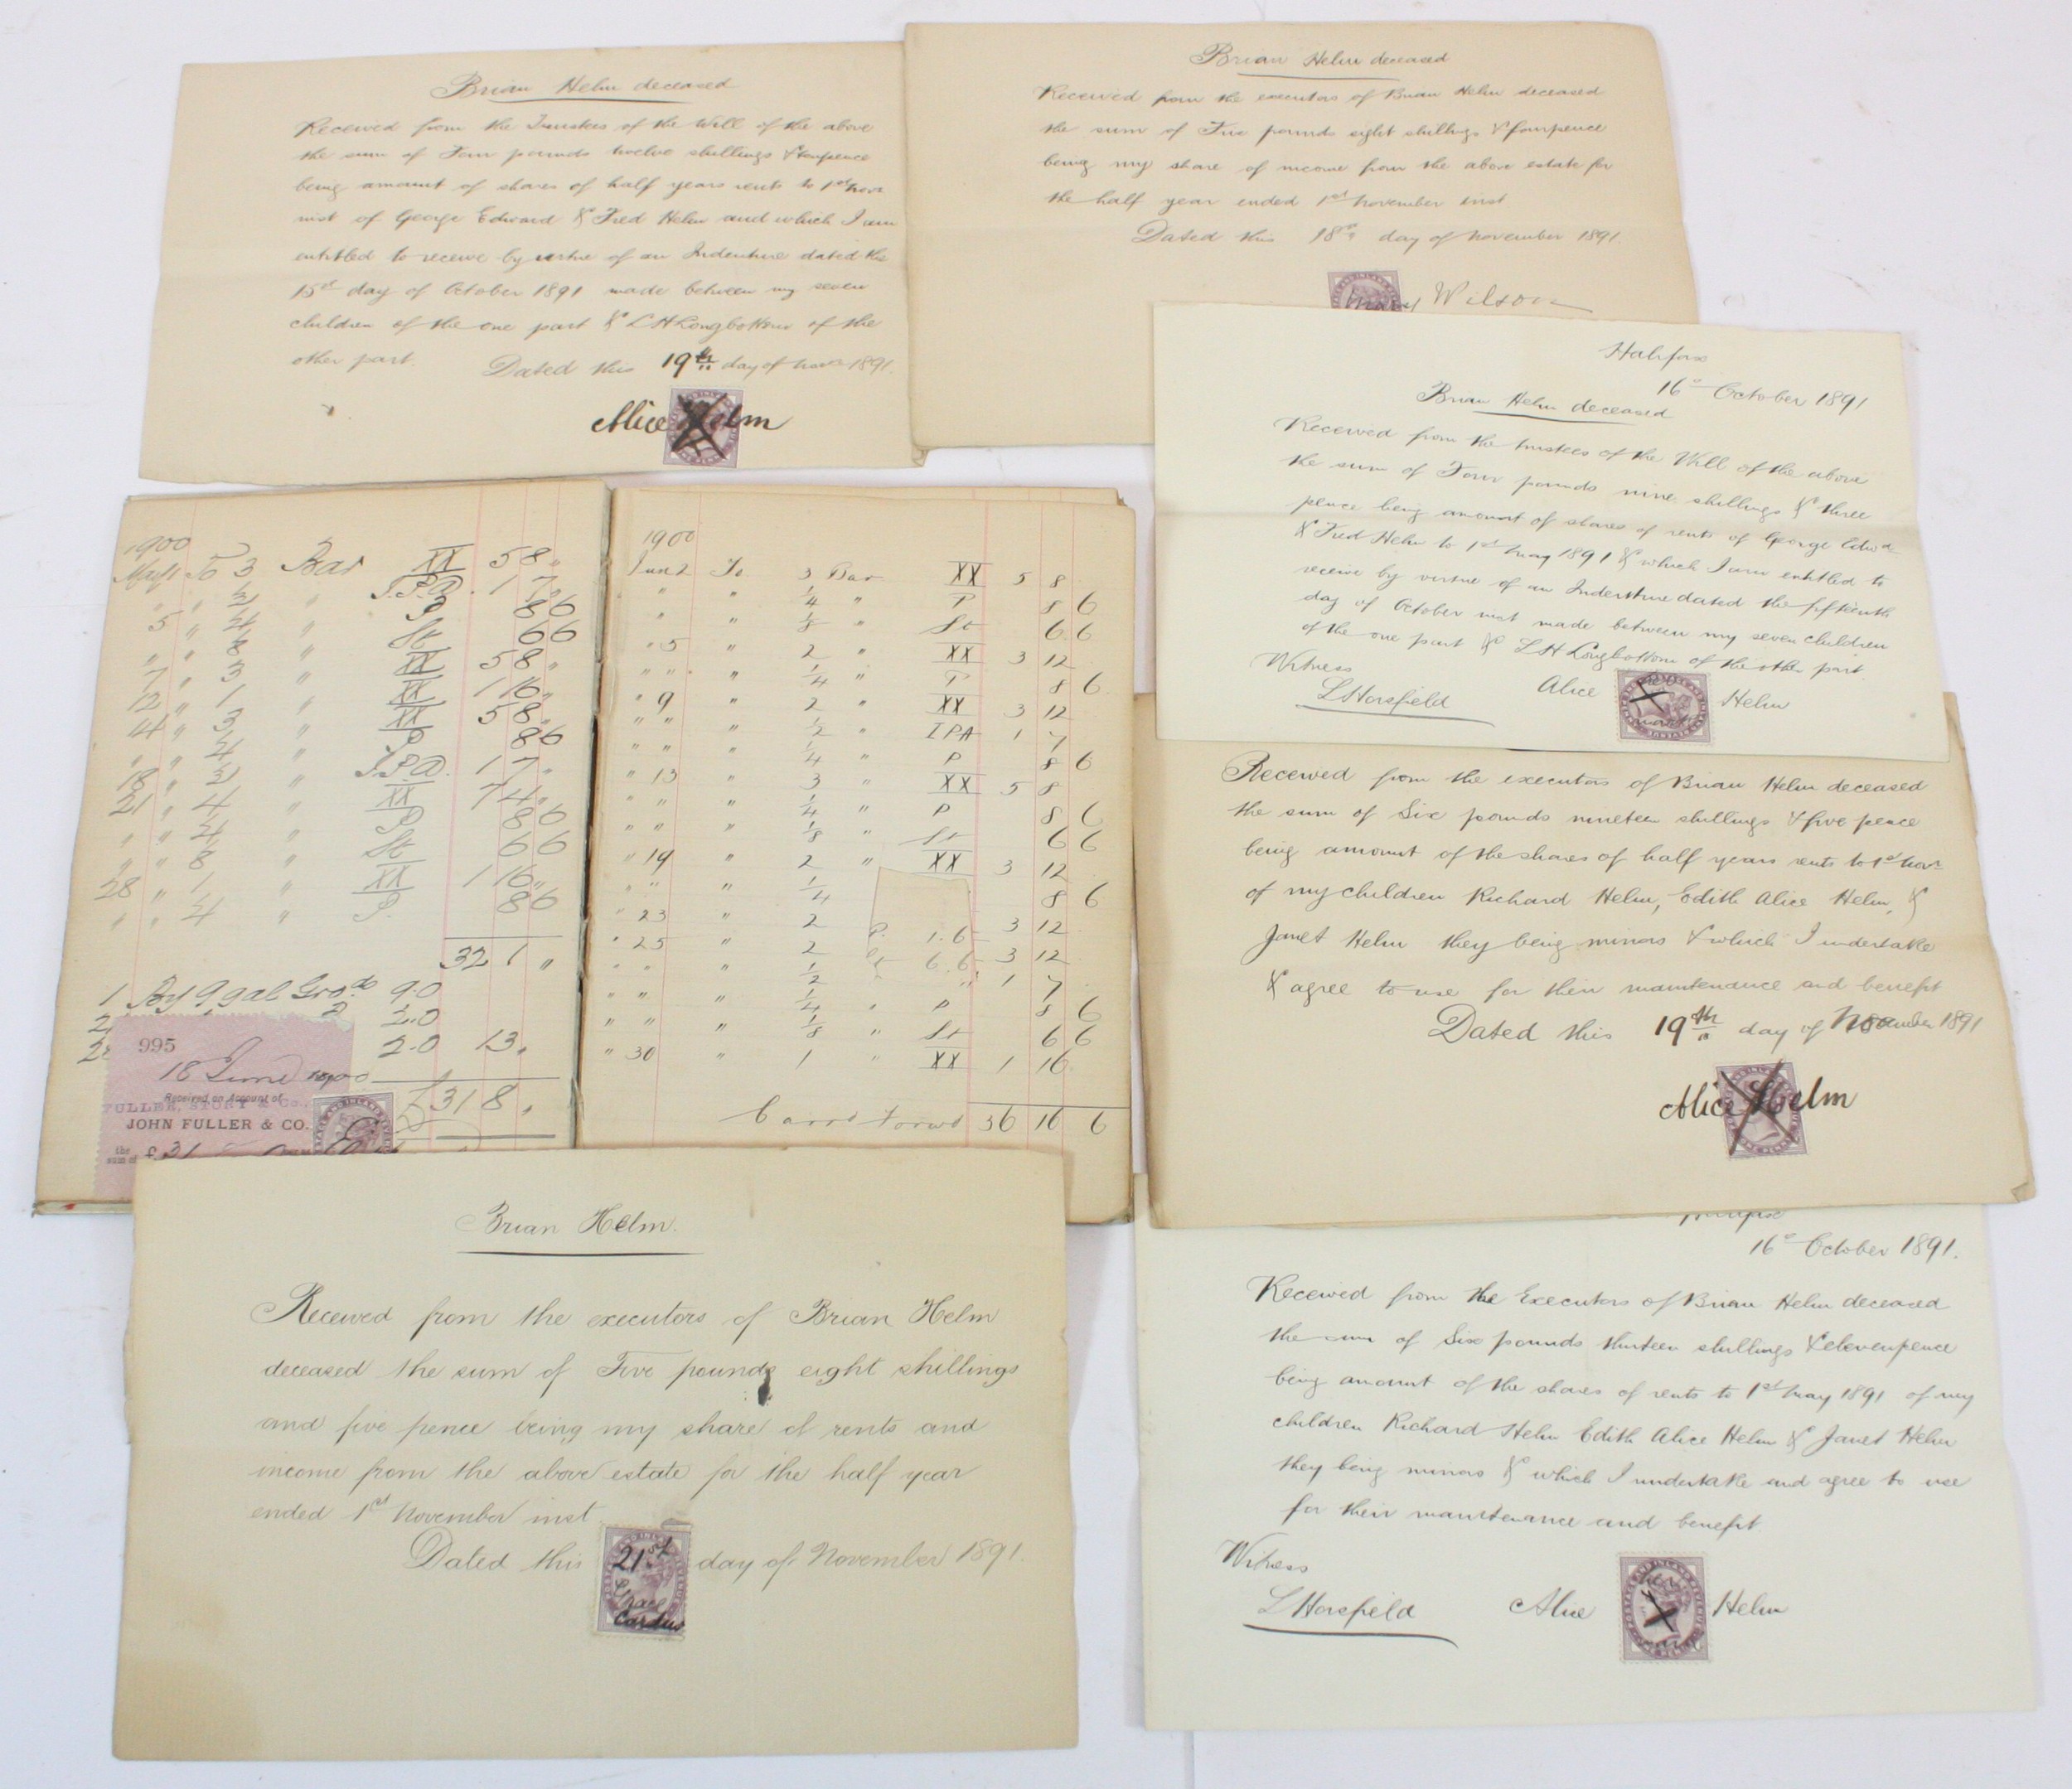 Brian Helm deceased
Received from the Trustees of the Will of the above
the sum of Four pounds twelve shillings & tenpence
being amount of shares of half years rents to 1st Novr
inst of George Edward & Fred Helm and which I am
entitled to receive by virtue of an Indenture dated the
15th day of October 1891 made between my seven
children of the one part & L H Longbottom of the
other part.
Dated this 19th day of Novr 1891.
Alice Helm
Brian Helm deceased
Received from the executors of Brian Helm deceased
the sum of Five pounds eight shillings & fourpence
being my share of income from the above estate for
the half year ended 1st November inst
Dated this 18th day of November 1891.
Mary Wilson
Halifax
16th October 1891
Brian Helm deceased
Received from the trustees of the Will of the above
the sum of Four pounds nine shillings & three
pence being amount of shares of rents of George Edwd
& Fred Helm to 1st May 1891 & which I am entitled to
receive by virtue of an Indenture dated the fifteenth
day of October inst made between my seven children
of the one part & L H Longbottom of the other part.
Witness
L Horsfield
Alice Helm
1900
May 1 To 3 Bar XX 5 8 "
" " 1/2 " I.P.A. 1 7 "
5 " 1/4 " P 8 6
" " 1/8 " St 6 6
7 " 3 " XX 5 8 "
12 " 1 " XX 1 16 "
14 " 3 " XX 5 8 "
" " 1/4 " P 8 6
18 " 1/2 " I.P.A. 1 7 "
21 " 4 " XX 7 4 "
" " 1/4 " P 8 6
" " 1/8 " St 6 6
28 " 1 " XX 1 16 "
" " 1/4 " P. 8 6
32 1 "
1 By 9 gal Gro 9.0
2.0
2.0 13 "
£31 8 "
995
18 June 1900
Received on Account of
FULLER, STORY & Co.,
JOHN FULLER & CO.
the sum of £31
1900
June 2 To 3 Bar XX 5 8
" " 1/4 " P 8 6
" " 1/8 " St 6 6
" 5 " 2 " XX 3 12
" " " 1/4 " P 8 6
" 9 " 2 " XX 3 12
" " " 1/2 " IPA 1 7
" " " 1/4 " P 8 6
" 13 " 3 " XX 5 8
" " " 1/4 " P 8 6
" " " 1/8 " St 6 6
" 19 " 2 " XX 3 12
" " " 1/4 8 6
" 23 " 2 3 12
" 25 " 2 3 12
" " " 1/2 1 7
" " " 1/4 " P 8 6
" " " 1/8 " St 6 6
" 30 " 1 " XX 1 16
Carrd forwd 36 16 6
P. 1.6
6.6
Received from the executors of Brian Helm deceased
the sum of Six pounds nineteen shillings & five pence
being amount of the shares of half years rents to 1st Novr
of my children Richard Helm, Edith Alice Helm, &
Janet Helm they being minors & which I undertake
& agree to use for their maintenance and benefit
Dated this 19th day of November 1891
Alice Helm
Brian Helm.
Received from the executors of Brian Helm
deceased the sum of Five pounds eight shillings
and five pence being my share of rents and
income from the above estate for the half year
ended 1st November inst
Dated this 21st day of November 1891.
Halifax
16th October 1891.
Received from the Executors of Brian Helm deceased
the sum of Six pounds thirteen shillings & elevenpence
being amount of the shares of rents to 1st May 1891 of my
children Richard Helm Edith Alice Helm & Janet Helm
they being minors & which I undertake and agree to use
for their maintenance and benefit.
Witness
L Horsfield
Alice Helm